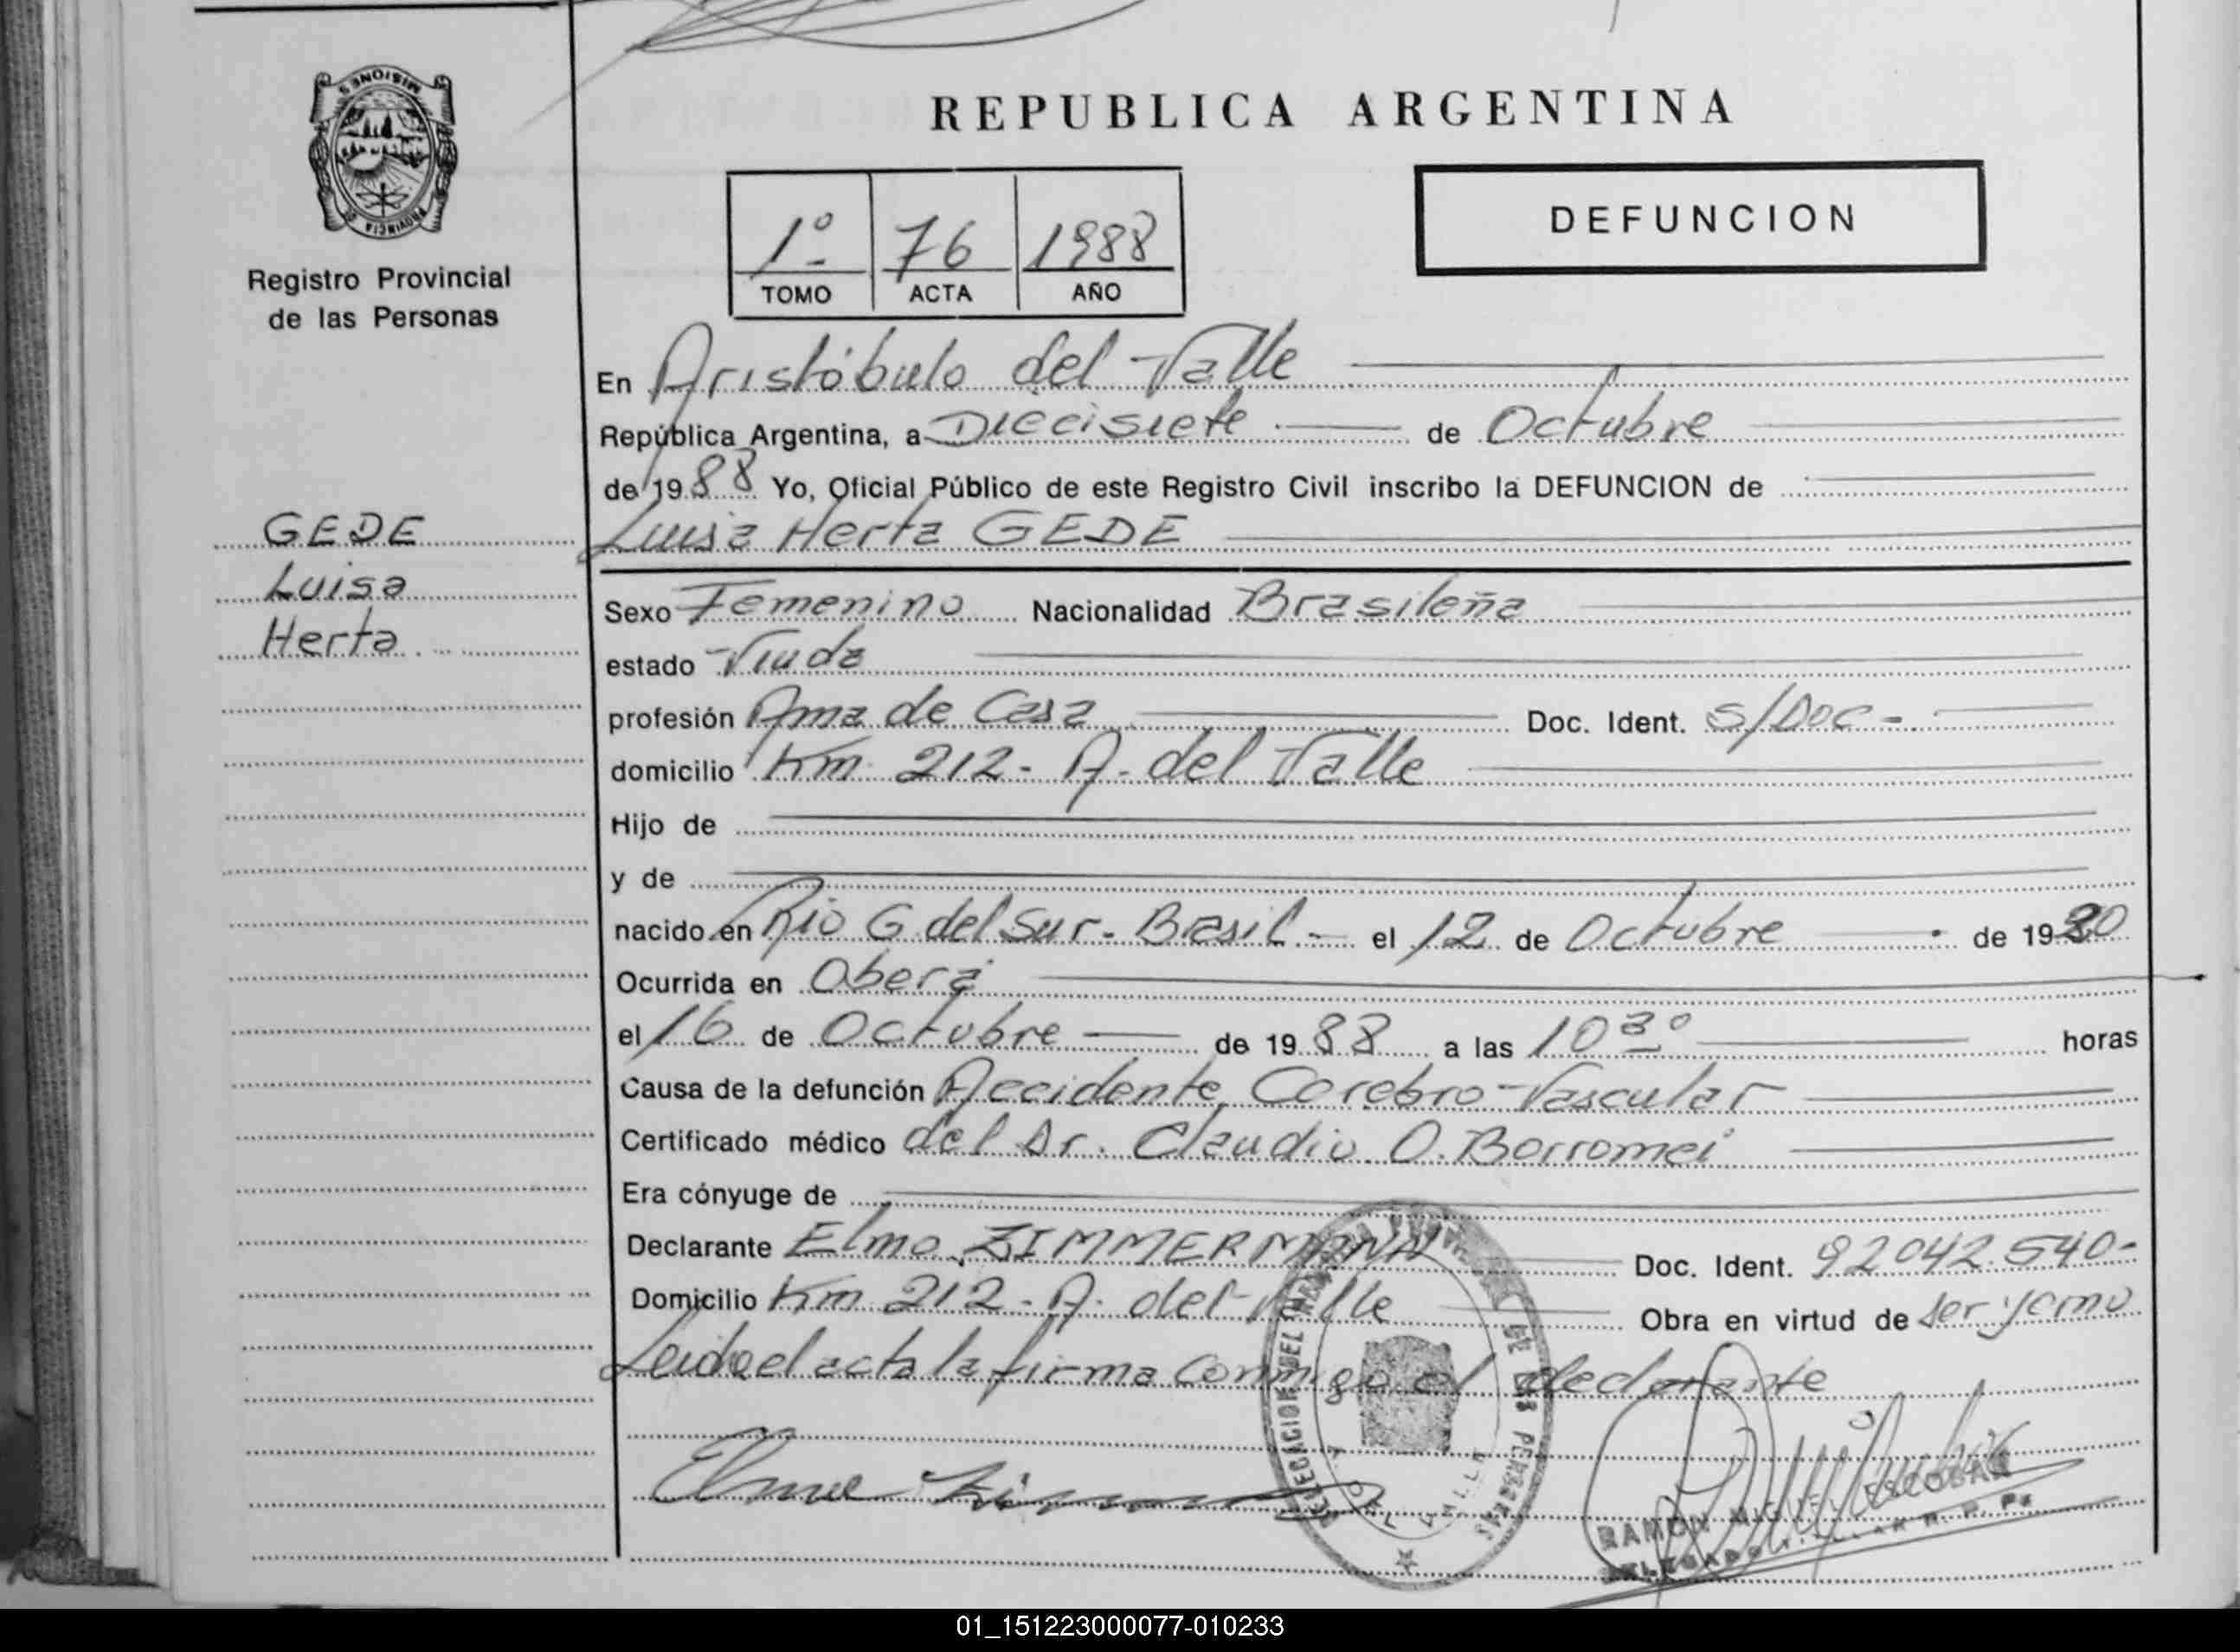 MISIONES
PROVINCIA DE
Registro Provincial
de las Personas
GEDE
Luisa
Herta
REPUBLICA ARGENTINA
1º 76 1988
TOMO ACTA AÑO
DEFUNCION
En Aristóbulo del Valle
República Argentina, a Diecisiete de Octubre
de 1988 Yo, Oficial Público de este Registro Civil inscribo la DEFUNCION de
Luisa Herta GEDE
Sexo Femenino Nacionalidad Brasileña
estado Viuda
profesión Ama de Casa Doc. Ident. S/Doc-
domicilio Km 212- A. del Valle
Hijo de
y de
nacido en Rio G del Sur- Brasil.- el 12 de Octubre de 1920
Ocurrida en Oberá
el 16 de Octubre de 1988 a las 10 30 horas
Causa de la defunción Accidente Cerebro-Vascular
Certificado médico del Dr. Claudio O. Borromei
Era cónyuge de
Declarante Elmo ZIMMERMANN Doc. Ident. 92042.540-
Domicilio Km 212- A. del Valle Obra en virtud de ser yerno
Leida el acta la firma conmigo el declarante
Elmo
RAMON MIGUEL ESCOBAR
01_151223000077-010233